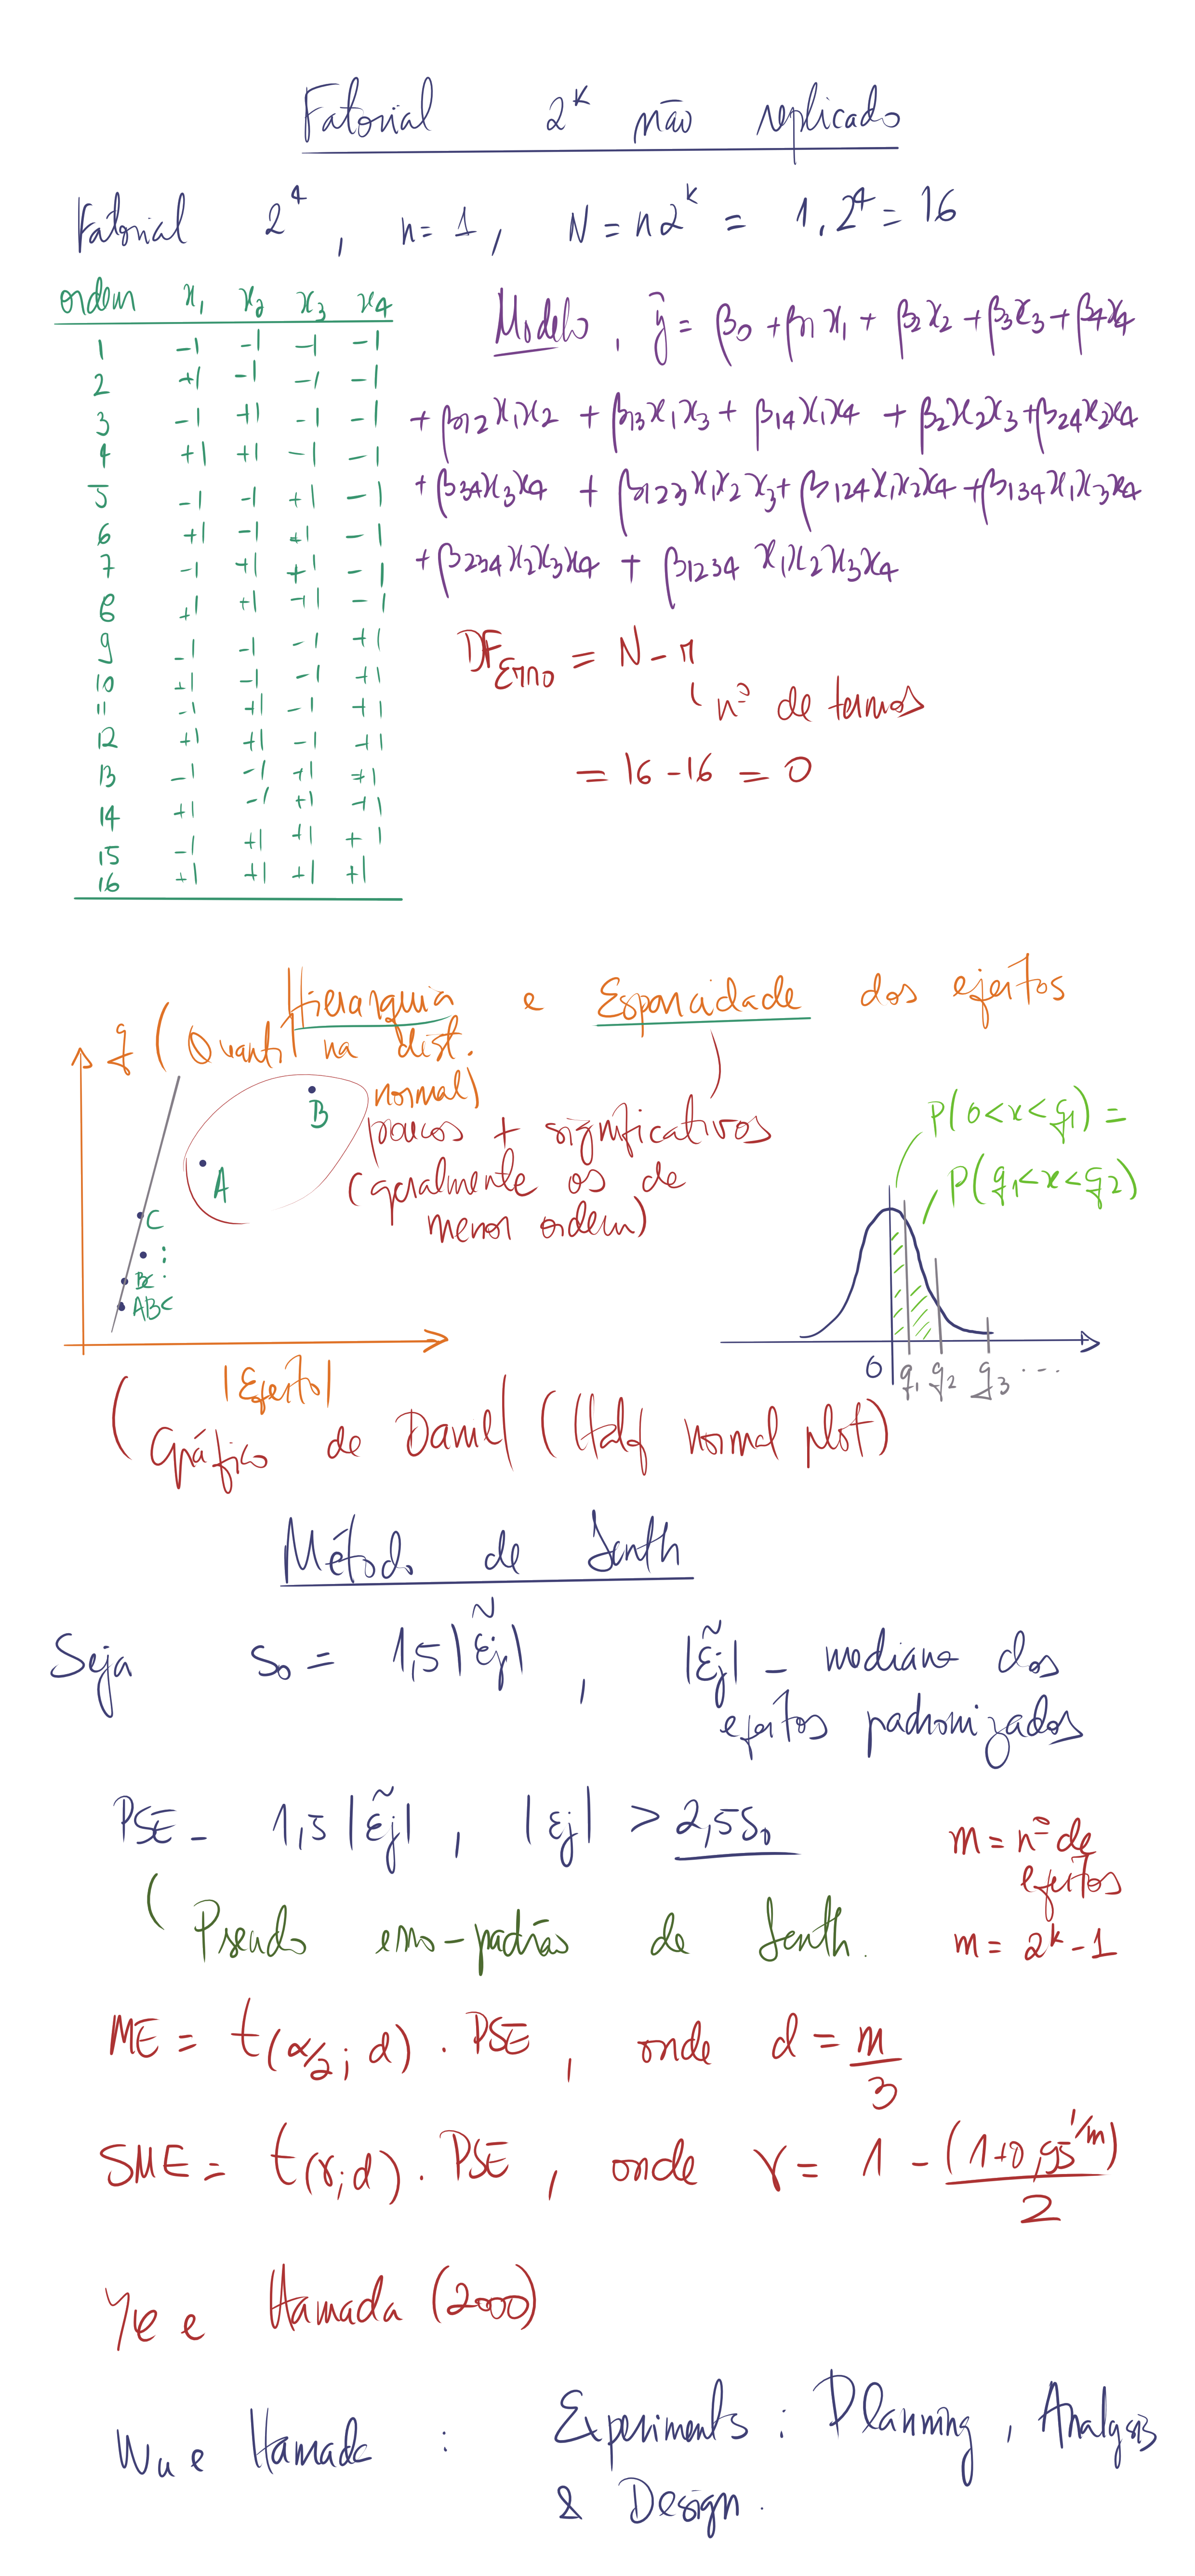 Fatorial 2^k não replicado
Fatorial 2^4, n = 1, N = n2^k = 1.2^4 = 16
ordem x₁ x₂ x₃ x₄
1 -1 -1 -1 -1
2 +1 -1 -1 -1
3 -1 +1 -1 -1
4 +1 +1 -1 -1
5 -1 -1 +1 -1
6 +1 -1 +1 -1
7 -1 +1 +1 -1
8 +1 +1 +1 -1
9 -1 -1 -1 +1
10 +1 -1 -1 +1
11 -1 +1 -1 +1
12 +1 +1 -1 +1
13 -1 -1 +1 +1
14 +1 -1 +1 +1
15 -1 +1 +1 +1
16 +1 +1 +1 +1
Modelo, ŷ = β0 + β1x1 + β2x2 + β3x3 + β4x4
+ β12x1x2 + β13x1x3 + β14x1x4 + β2x2x3 + β24x2x4
+ β34x3x4 + β123x1x2x3 + β124x1x2x4 + β134x1x3x4
+ β234x2x3x4 + β1234 x1x2x3x4
DF Erro = N - r
nº de termos
= 16 - 16 = 0
Hierarquia e Esparcidade dos efeitos
q (Quantil na dist.
normal)
B
A
C
:
BC
ABC
|Efeito|
poucos + significativos
(geralmente os de
menor ordem)
P(0<x<q₁) =
P(q₁<x<q₂)
0 q₁ q₂ q₃ ...
Gráfico de Daniel (Half normal plot)
Método de Lenth
Seja s₀ = 1,5|ε̃j|, |ε̃j| - mediana dos
efeitos padronizados
PSE - 1,5|ε̃j|, |εj| > 2,5s₀
Pseudo erro-padrão de Lenth.
m = nº de
efeitos
m = 2^k - 1
ME = t(α/2; d) . PSE, onde d = m/3
SME = t(γ; d) . PSE, onde γ = 1 - (1+0,95^1/m)/2
Ye e Hamada (2000)
Wu e Hamada : Experiments : Planning, Analysis
& Design.